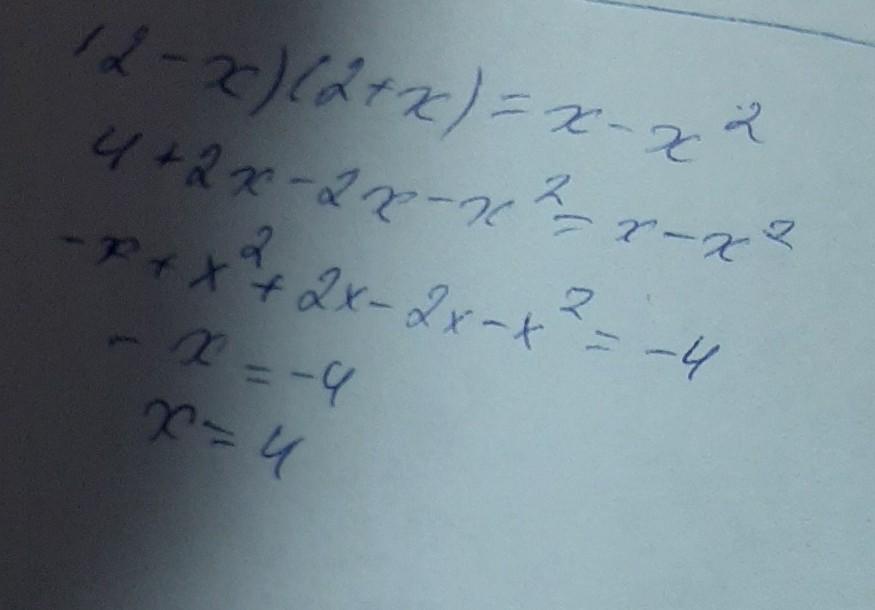 (2-x)(2+x)=x-x²
4+2x-2x-x²=x-x²
-x+x²+2x-2x-x²=-4
-x=-4
x=4